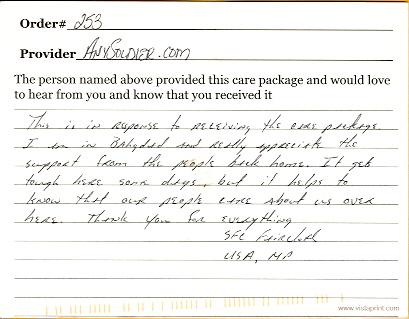 Order# 253
Provider AnySoldier.com
The person named above provided this care package and would love
to hear from you and know that you received it
This is in response to receiving the care package.
I am in Baghdad and really appreciate the
support from the people back home. It gets
tough here some days, but it helps to
know that our people care about us over
here. Thank you for everything
SFC
USA, MP
www.vistaprint.com